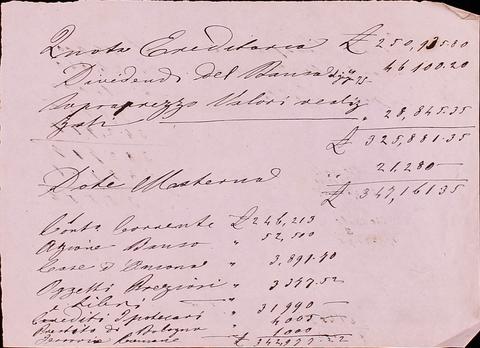 Quota Ereditaria £ 250,935.80
Dividendi del Banco 46 100.20
Sopraprezzo Valori realiz
zati " 28,845.35
£ 325,881.35
Dote Materna " 21,280 —
£ 347,161.35
Conto Corrente £ 246,213
Azione Banco " 52,500
Case d'Ancona " 3,891.40
Oggetti Preziosi " 3347.52
Crediti Ipotecari " 31990 —
Prestito di Bologna " 4005 —
Ferrovie Romane " 1000